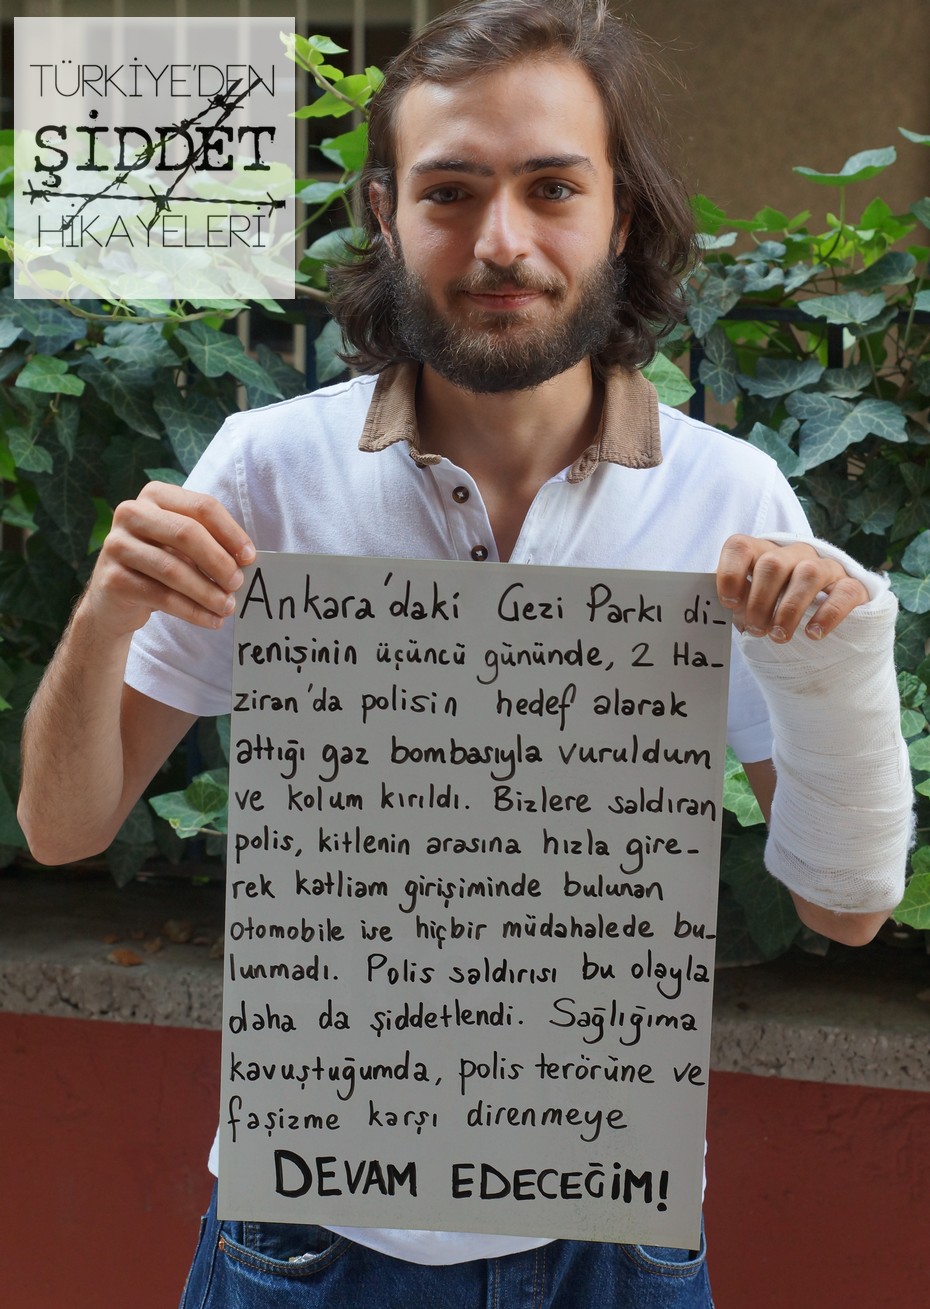 TÜRKİYE'DEN
ŞİDDET
HİKAYELERİ
Ankara'daki Gezi Parkı di-
renişinin üçüncü gününde, 2 Ha-
ziran'da polisin hedef alarak
attığı gaz bombasıyla vuruldum
ve kolum kırıldı. Bizlere saldıran
polis, kitlenin arasına hızla gire-
rek katliam girişiminde bulunan
otomobile ise hiçbir müdahalede bu-
lunmadı. Polis saldırısı bu olayla
daha da şiddetlendi. Sağlığıma
kavuştuğumda, polis terörüne ve
faşizme karşı direnmeye
DEVAM EDECEĞİM!